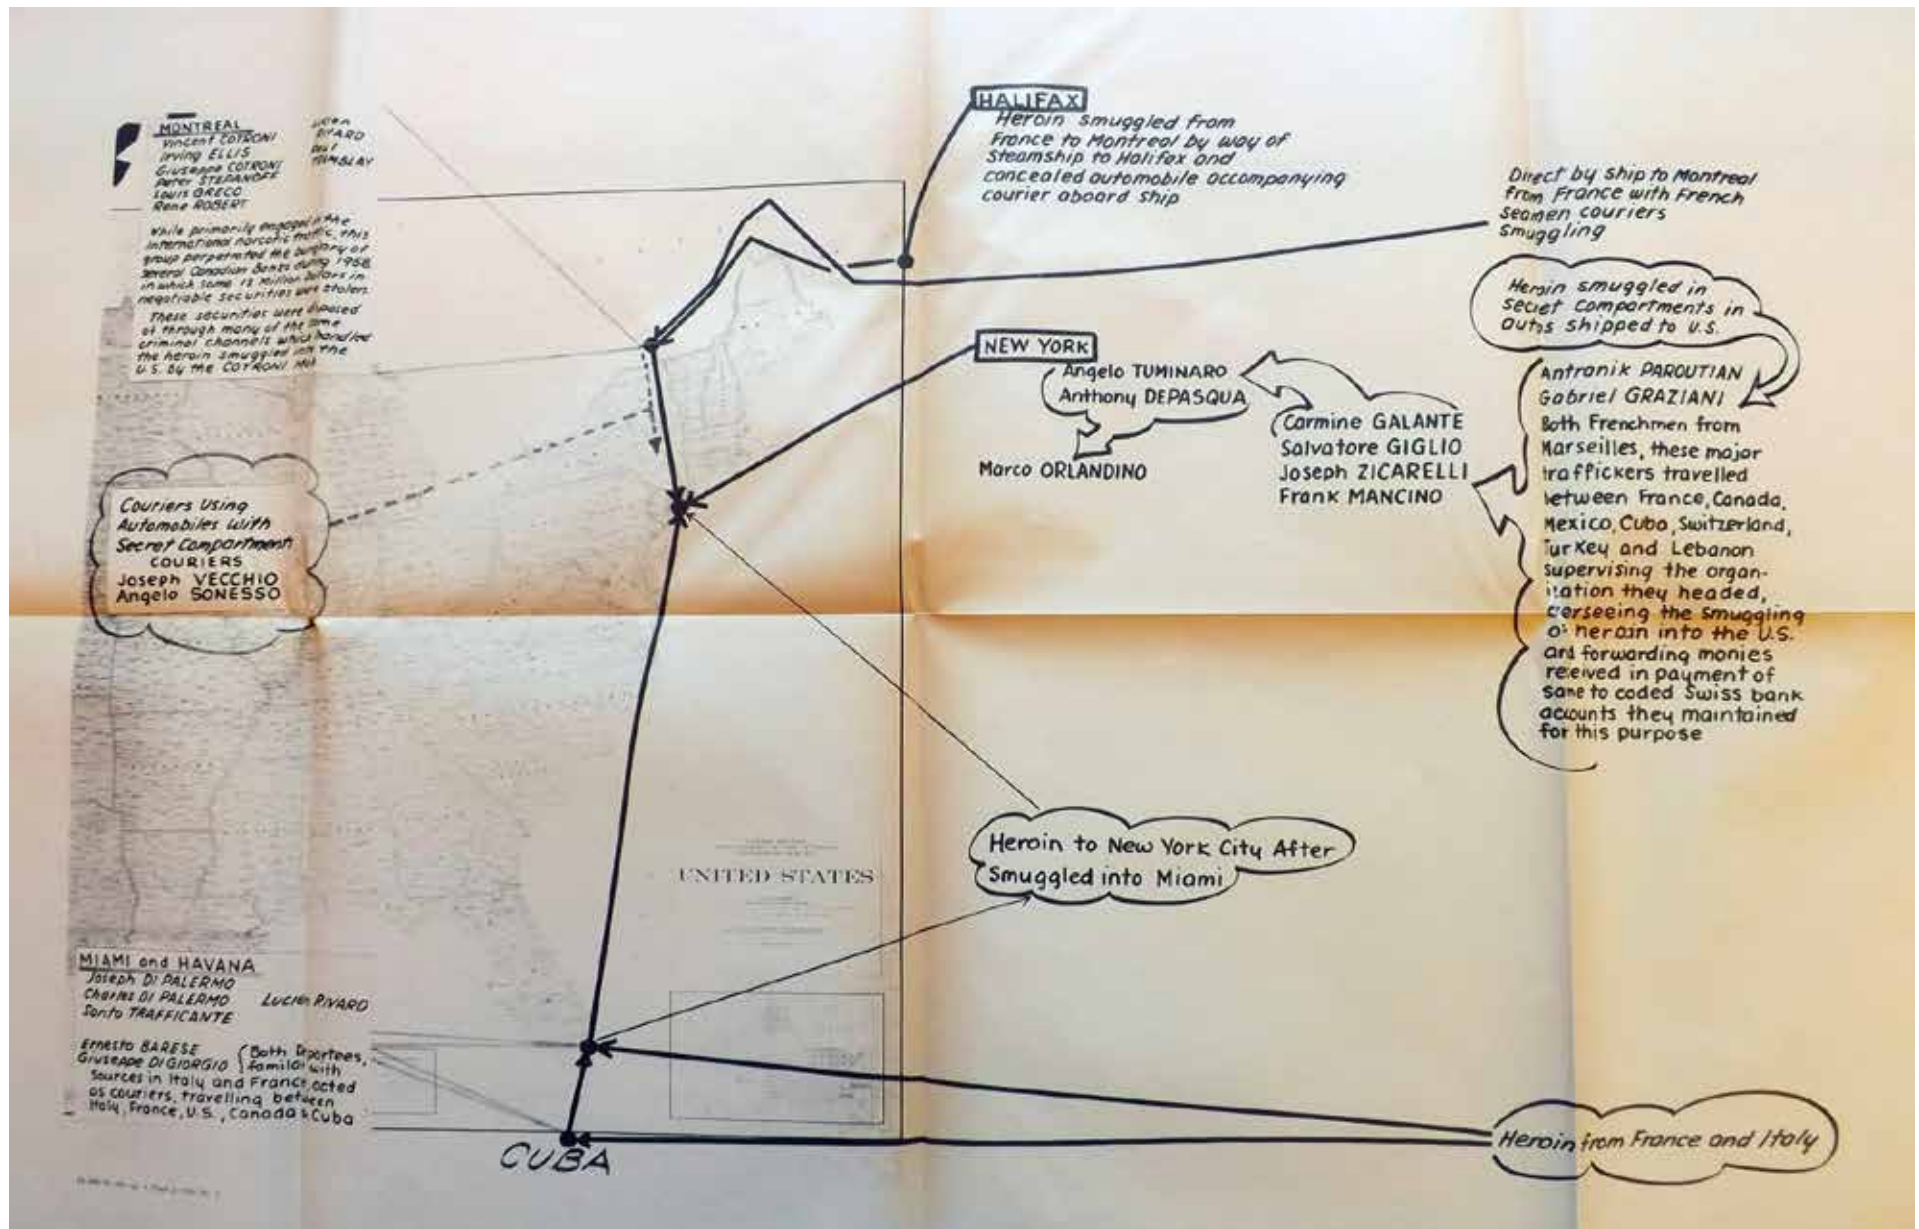 MONTREAL
Vincent COTRONI
Irving ELLIS
Giuseppe COTRONI
Peter STEPANOFF
Louis GRECO
Rene ROBERT
While primarily engaged in the
international narcotic traffic, this
group perpetrated the burglary of
several Canadian Banks during 1958
in which some 13 Million Dollars in
negotiable securities were stolen.
These securities were disposed
of through many of the same
criminal channels which handled
the heroin smuggled into the
U.S. by the COTRONI
HALIFAX
Heroin smuggled from
France to Montreal by way of
Steamship to Halifax and
concealed automobile accompanying
courier aboard ship
Direct by ship to Montreal
from France with French
seamen couriers
smuggling
Heroin smuggled in
secret compartments in
autos shipped to U.S.
NEW YORK
Angelo TUMINARO
Anthony DEPASQUA
Marco ORLANDINO
Carmine GALANTE
Salvatore GIGLIO
Joseph ZICARELLI
Frank MANCINO
Antranik PAROUTIAN
Gabriel GRAZIANI
Both Frenchmen from
Marseilles, these major
traffickers travelled
between France, Canada,
Mexico, Cuba, Switzerland,
Turkey and Lebanon
supervising the organ-
ization they headed,
overseeing the smuggling
of heroin into the U.S.
and forwarding monies
received in payment of
same to coded Swiss bank
accounts they maintained
for this purpose
Couriers Using
Automobiles with
Secret Compartment
COURIERS
Joseph VECCHIO
Angelo SONESSO
Heroin to New York City After
Smuggled into Miami
UNITED STATES
MIAMI and HAVANA
Joseph DI PALERMO
Charles DI PALERMO Lucien RIVARD
Santo TRAFFICANTE
Ernesto BARESE
Giuseppe DI GIORGIO
Both Deportees,
familar with
Sources in Italy and France, acted
as couriers, travelling between
Italy, France, U.S., Canada & Cuba
CUBA
Heroin from France and Italy